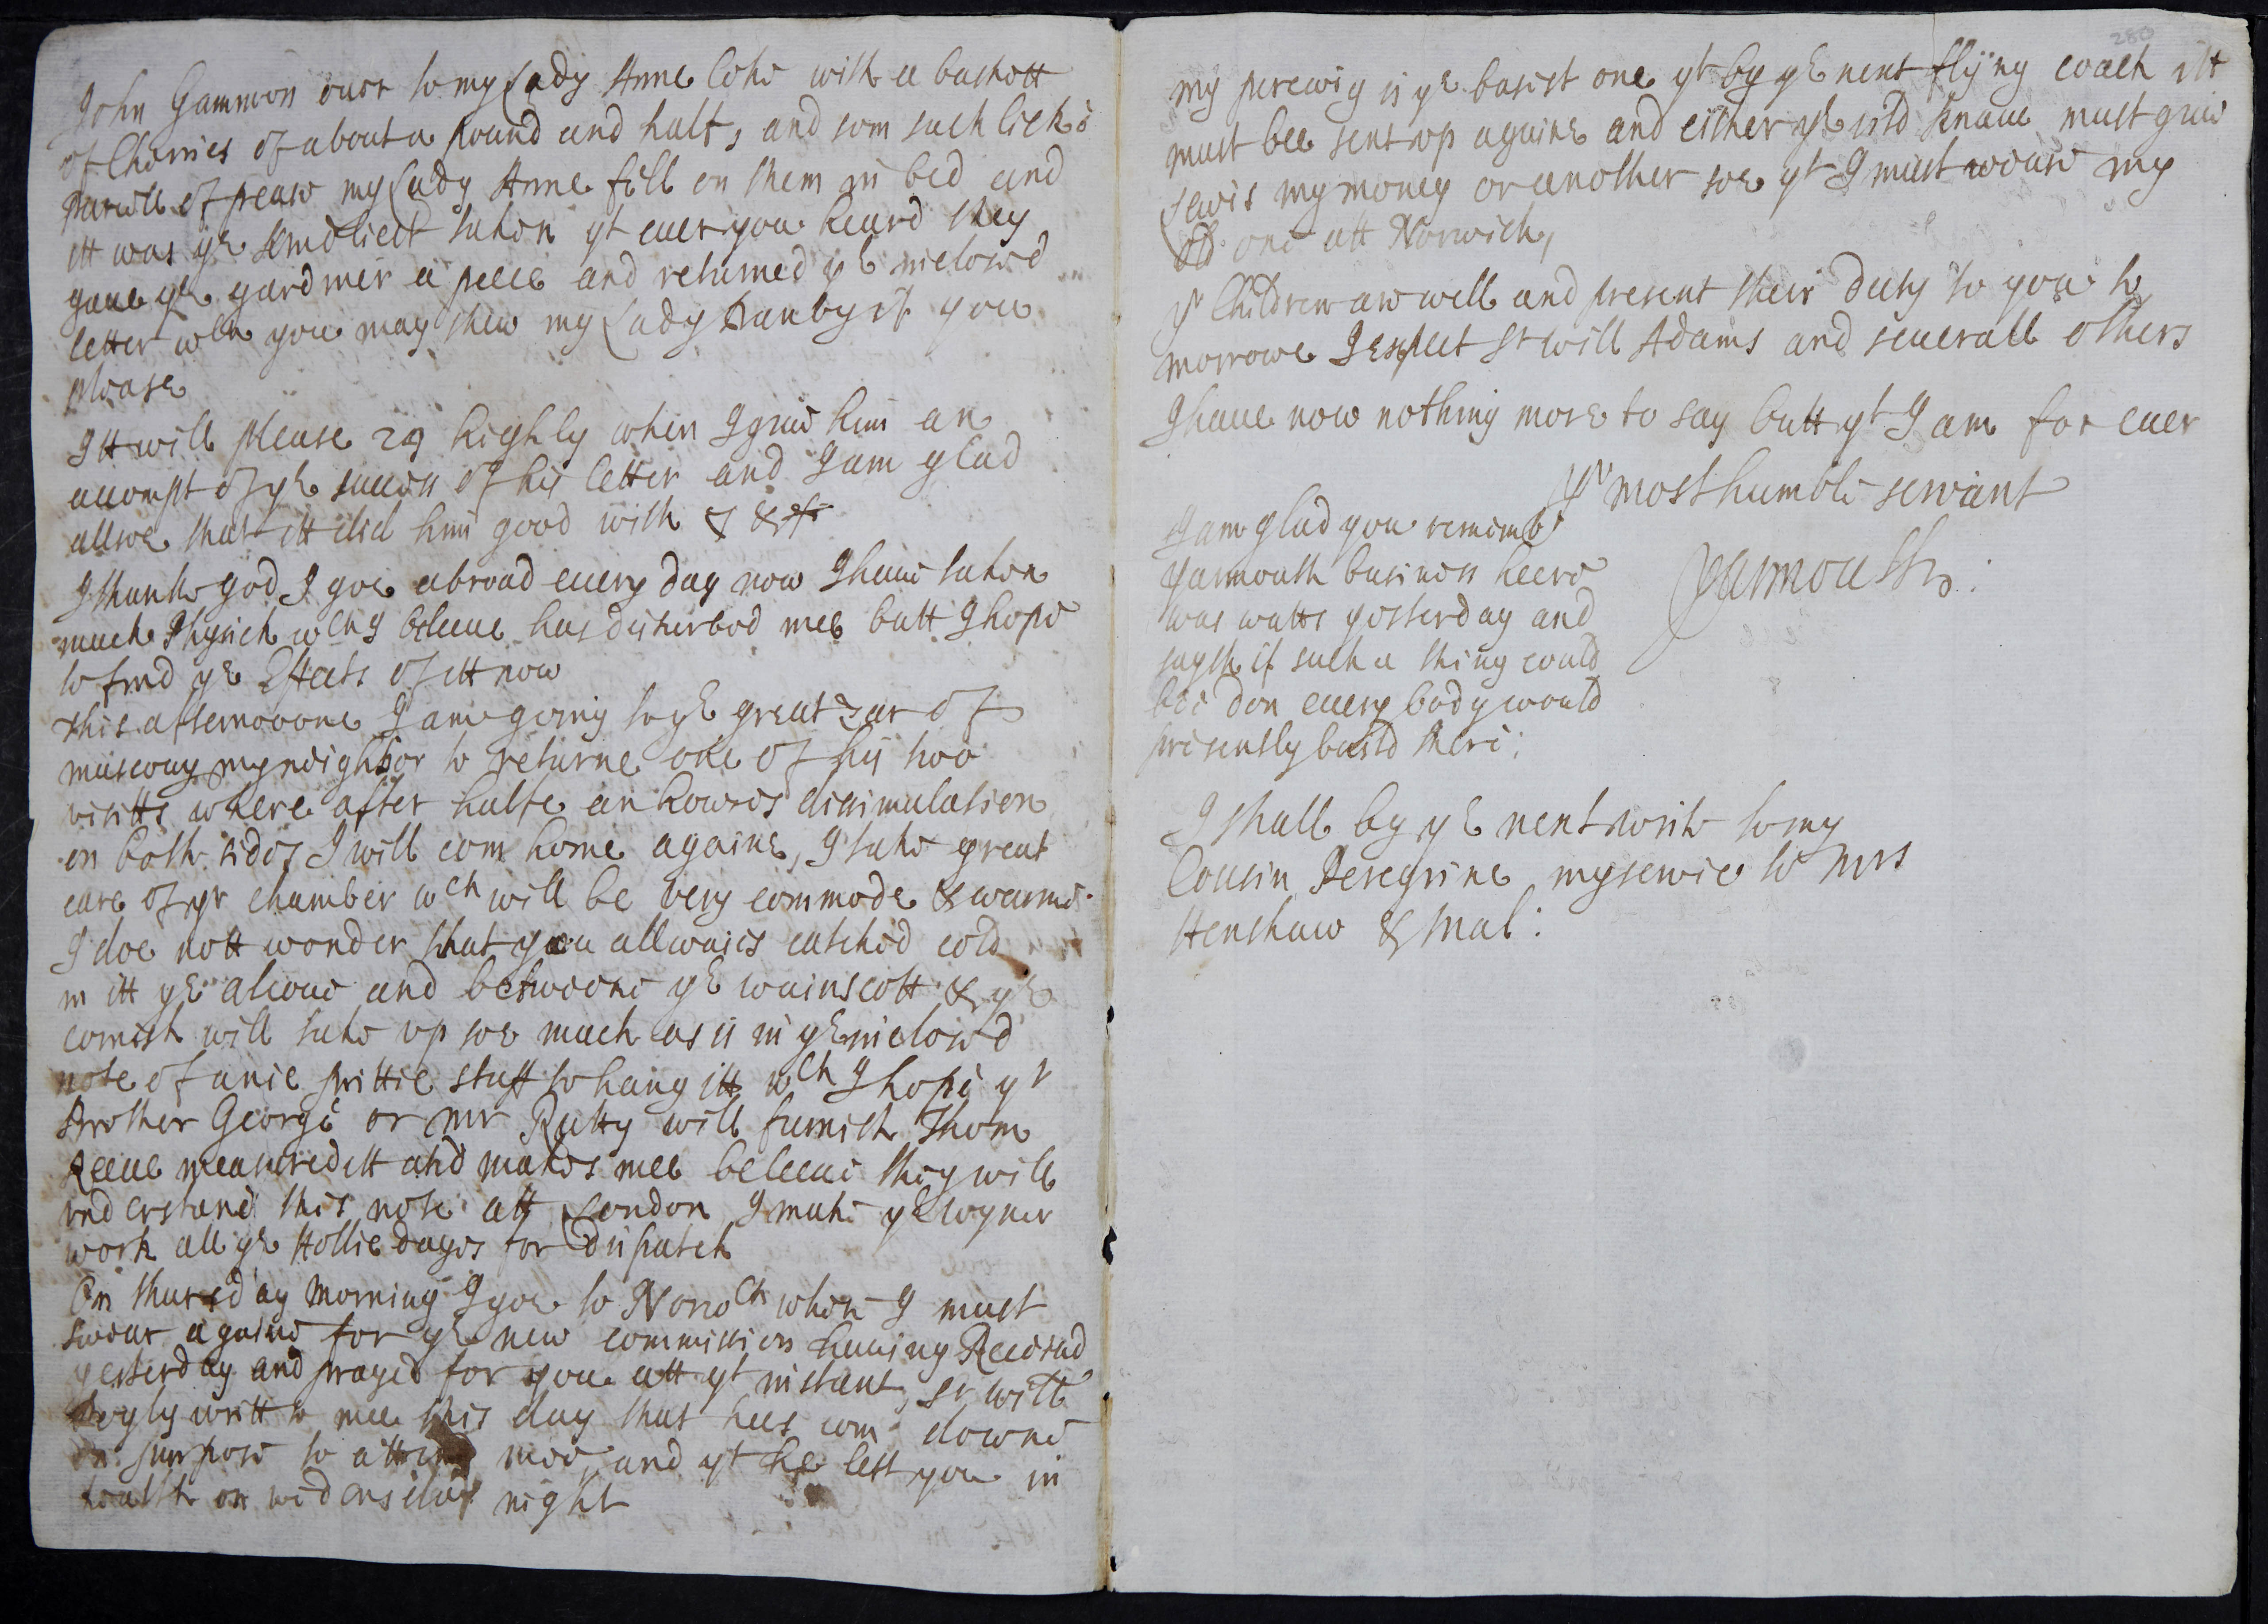 John Gammon ouer to my Lady Anne Coke with a baskett
of Cherries of about a pound and halfe, and som such like
parcell of pease my Lady Anne fell on them in bed and
itt was ye kindliest taken yt euer you heard they
gaue ye gardiner a peece and returned ye inclosed
letter wch you may shew my Lady Danby if you
please
Itt will please 29 highly when I giue him an
accompt of ye success of his letter and I am glad
allsoe that itt did him good with &
I thanke god I goe abroad euery day now I haue taken
much Physick wch I beleeue has disturbed mee butt I hope
to find ye Effects of itt now
this afternooone I am going to ye great Zar of
muscouy my neighbor to returne one of his too
visitts where after halfe an howres dissimulation
on both sides I will com home againe, I take great
care of yr chamber wch will be very commode & warme
I doe nott wonder that you allwaies catched cold
in itt ye alcoue and betweene ye wainscott & ye
cornish will take vp soe much as is in ye inclosed
note of anie prittie stuff to hang itt wch I hope yr
Brother George or Mr Rutty will furnish Thom
Reeue measured itt and makes mee beleeue they will
vnderstand this note att London I make ye Joyner
work all ye Hollie dayes for dispatch
On thursday Morning I goe to Norwch when I must
swear againe for ye new commission hauing Receiued
yesterday and prayed for you att yt instant, Sr Will
Doyly writt to mee this day that hees com downe
on purpose to attend mee, and yt he left you in
health on wedensday night
280
my perewig is ye basest one yt by ye next flying coach itt
must bee sent vp againe and either ye old knaue must giue
Lewis my money or another soe yt I must weare my
old one att Norwich,
yr Children are well and present their duty to you to
morrowe I expect Sr Will Adams and seuerall others
I haue now nothing more to say butt yt I am for euer
yr most humble seruant
Yarmouth:
I am glad you rememb
Yarmouth business heere
was watts yesterday and
sayth if such a thing could
bee don euery body would
presently build there:
I shall by ye next write to my
Cousin Peregrine my seruice to Mrs
Henshaw & Mal: